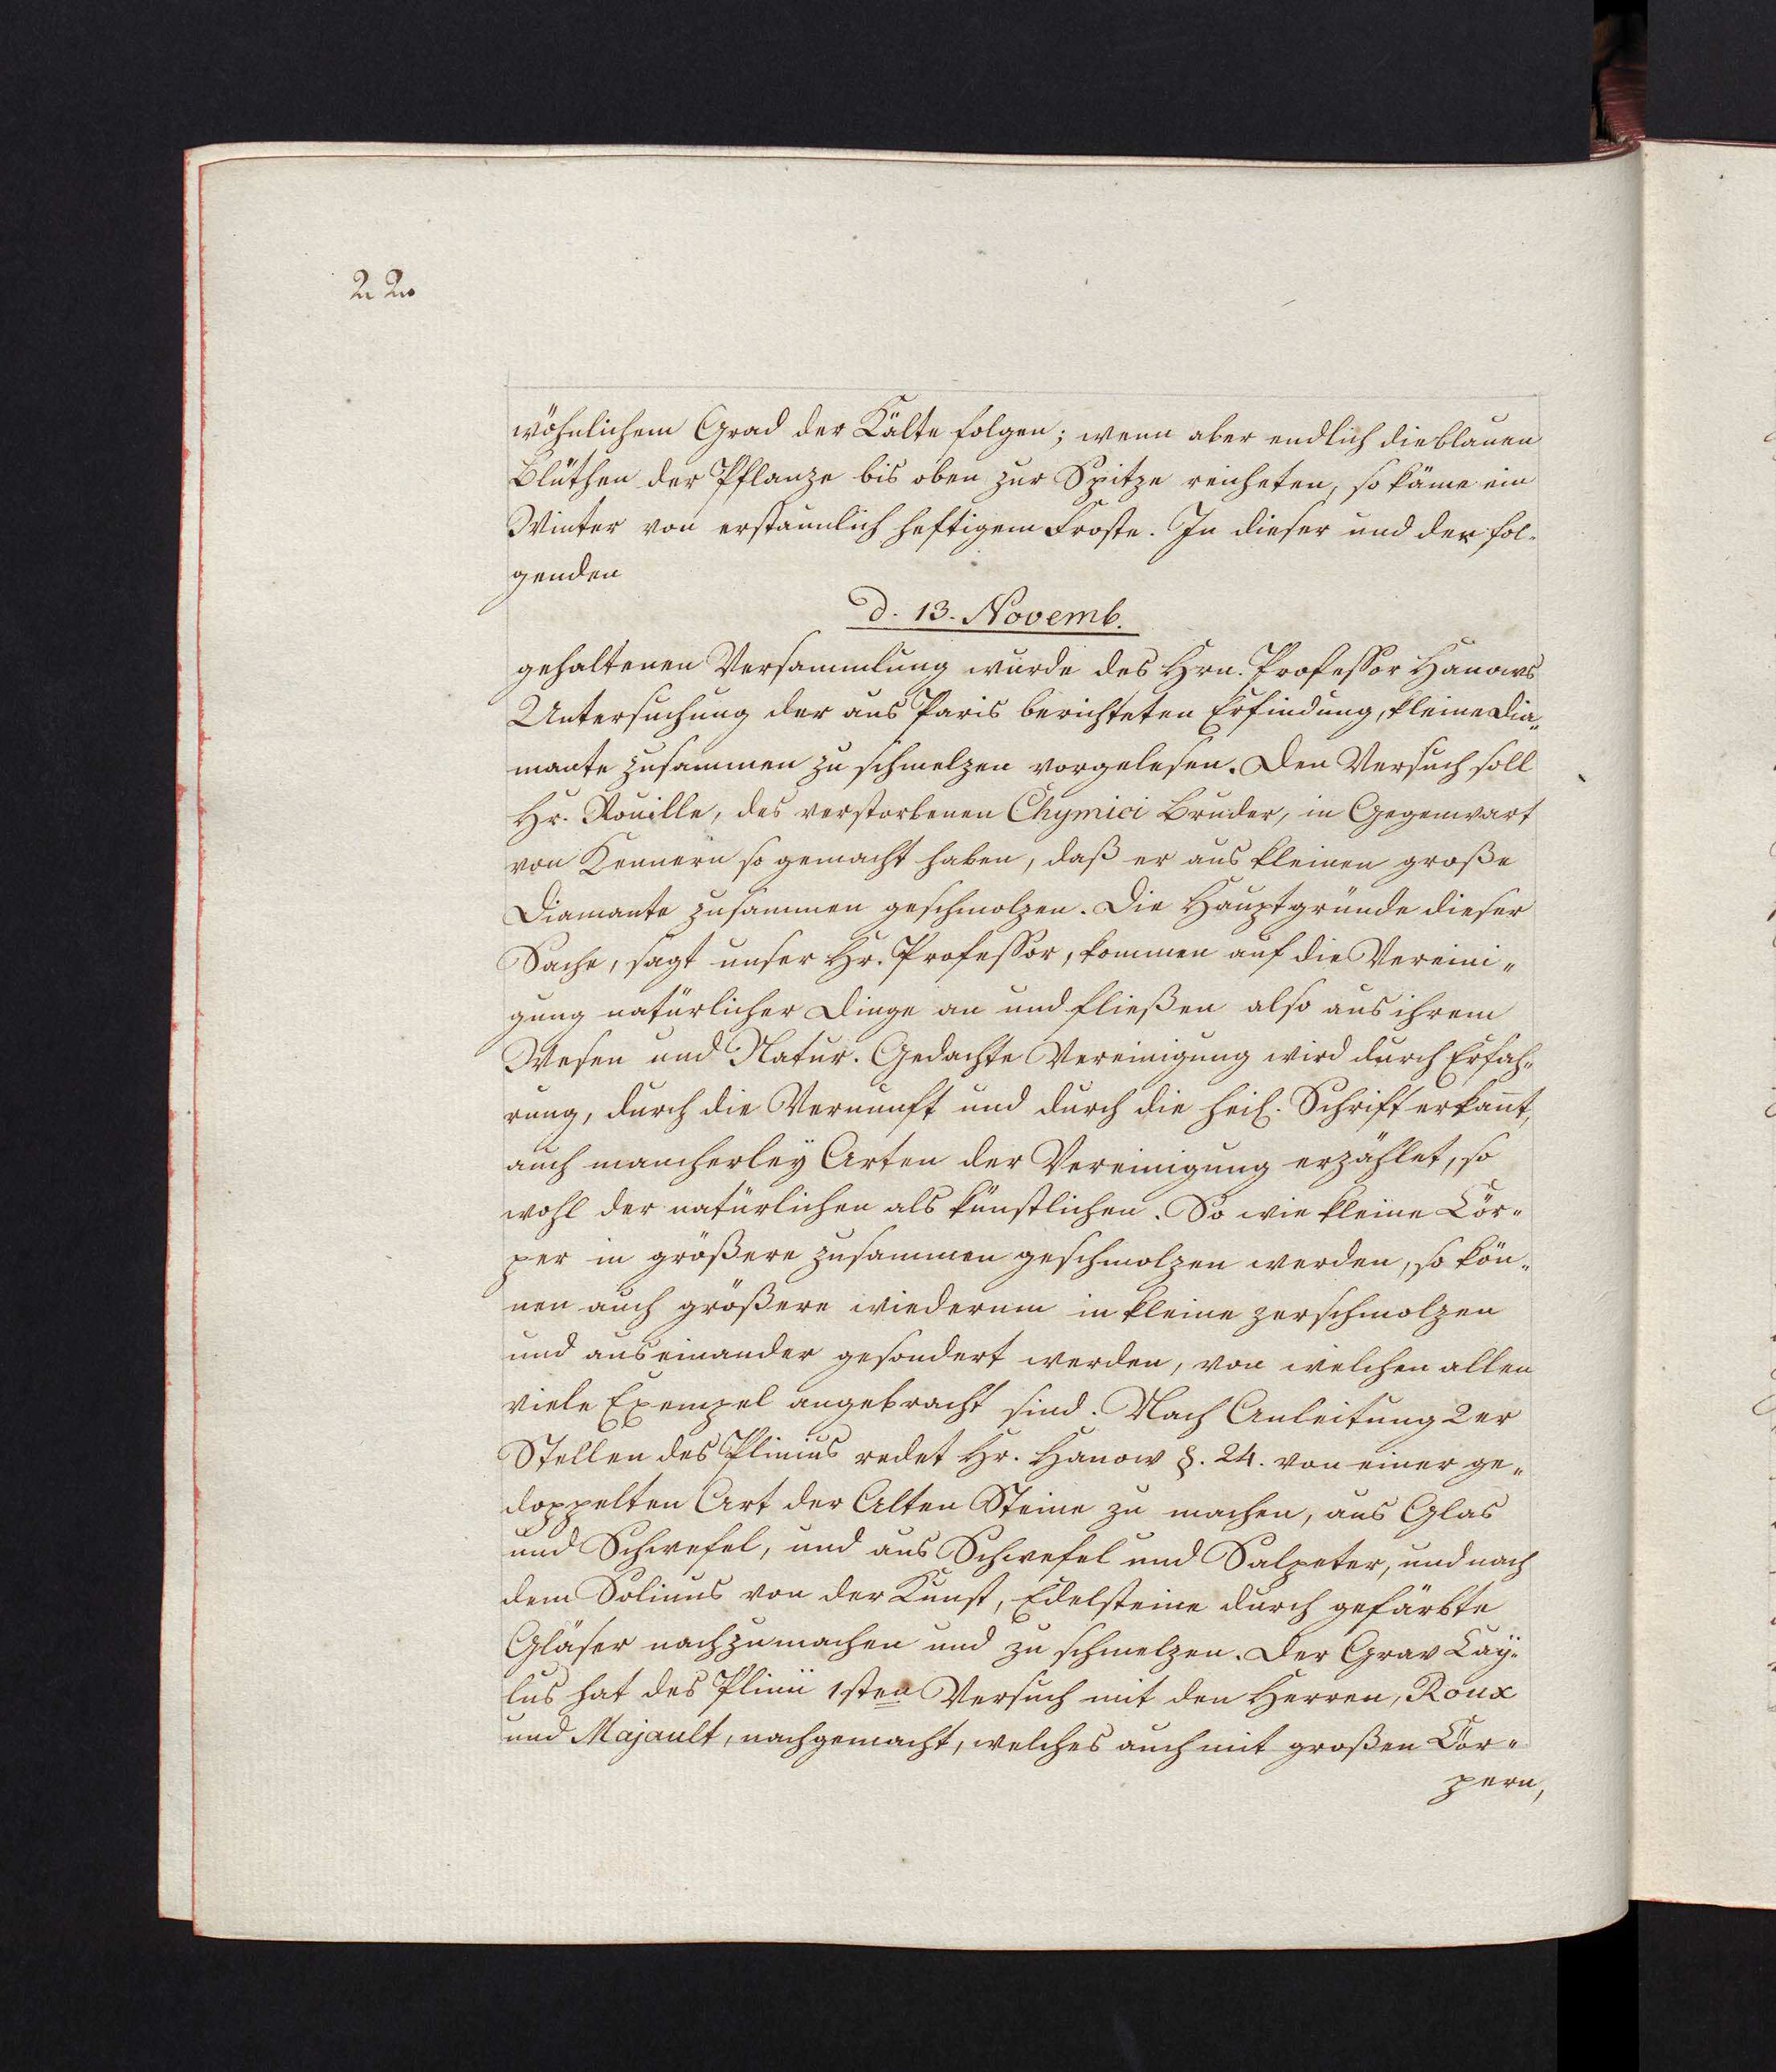 22
wöhnlichem Grad der Kälte folgen; wenn aber endlich die blauen
Blüthen der Pflanze bis oben zur Spitze reicheten, so käme ein
Winter von erstaunlich heftigem Froste. In dieser und der fol-
genden
d. 13. Novemb.
gehaltenen Versammlung wurde des Hrn. Professor Hanows
Untersuchung der aus Paris berichteten Erfindung, kleine Dia-
mante zusammen zu schmelzen vorgelesen. Den Versuch soll
Hr. Rouille, des verstorbenen Chymici Bruder, in Gegenwart
von Kennern so gemacht haben, daß er aus kleinen große
Diamante zusammen geschmolzen. Die Hauptgründe dieser
Sache, sagt unser Hr. Professor, kommen auf die Vereini-
gung natürlicher Dinge an und fließen also aus ihrem
Wesen und Natur. Gedachte Vereinigung wird durch Erfah-
rung, durch die Vernunft und durch die heil. Schrift erkañt,
auch mancherley Arten der Vereinigung erzählet, so
wohl der natürlichen als künstlichen. So wie kleine Cör-
per in größere zusammen geschmolzen werden, so kön-
nen auch größere wiederum in kleine zerschmolzen
und auseinander gesondert werden, von welchen allen
viele Exempel angebracht sind. Nach Anleitung 2er
Stellen des Plinius redet Hr. Hanow §. 24. von einer ge-
doppelten Art der Alten Steine zu machen, aus Glas
und Schwefel, und aus Schwefel und Salpeter, und nach
dem Solinus von der Kunst, Edelsteine durch gefärbte
Gläser nachzumachen und zu schmelzen. Der Grav Caÿ-
lus hat des Plinii 1sten Versuch mit den Herren, Roux
und Majault, nachgemacht, welches auch mit großen Cör-
pern,